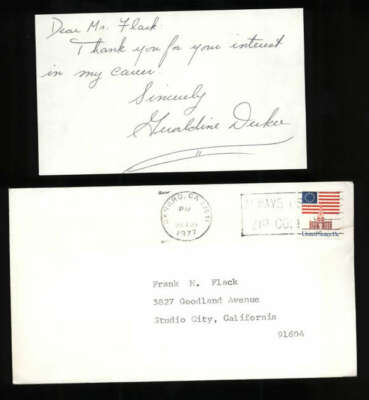 Dear Mr. Flack
Thank you for your interest
in my career
Sincerely
Geraldine
OXNARD, CA
PM
1977
ZIP CODE
Frank M. Flack
3827 Goodland Avenue
Studio City, California
91604